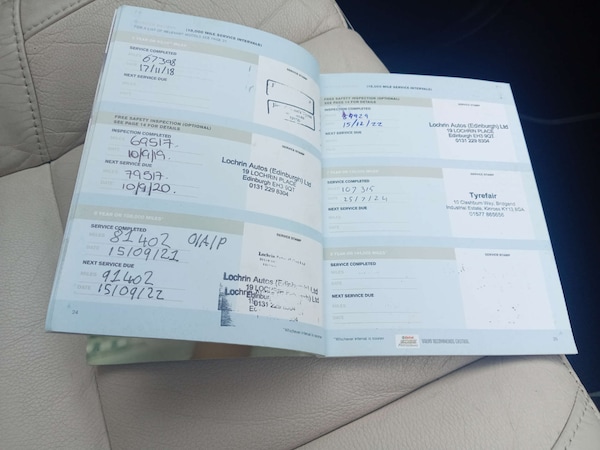 (10,000 MILE SERVICE INTERVALS)
SERVICE COMPLETED
67398
17/11/18
NEXT SERVICE DUE
SERVICE STAMP
FREE SAFETY INSPECTION (OPTIONAL)
SEE PAGE 14 FOR DETAILS.
INSPECTION COMPLETED
69517.
10/9/19.
NEXT SERVICE DUE
79517.
10/9/20.
SERVICE STAMP
Lochrin Autos (Edinburgh) Ltd
19 LOCHRIN PLACE
Edinburgh EH3 9QT
0131 229 8304
SERVICE COMPLETED
81402 O/A/P
15/09/21
NEXT SERVICE DUE
91402
15/09/22
SERVICE STAMP
Lochrin Autos (Edinburgh) Ltd
19 LOCHRIN PLACE
0131 229
24
*Whichever interval is sooner
(10,000 MILE SERVICE INTERVALS)
FREE SAFETY INSPECTION (OPTIONAL)
SEE PAGE 14 FOR DETAILS.
INSPECTION COMPLETED
15/12/22
NEXT SERVICE DUE
SERVICE STAMP
Lochrin Autos (Edinburgh) Ltd
19 LOCHRIN PLACE
Edinburgh EH3 9QT
0131 229 8304
SERVICE COMPLETED
107315
25/7/24
NEXT SERVICE DUE
SERVICE STAMP
Tyrefair
Industrial Estate, Kinross KY13
01577
SERVICE COMPLETED
MILES
DATE
NEXT SERVICE DUE
MILES
DATE
SERVICE STAMP
*Whichever interval is sooner
25